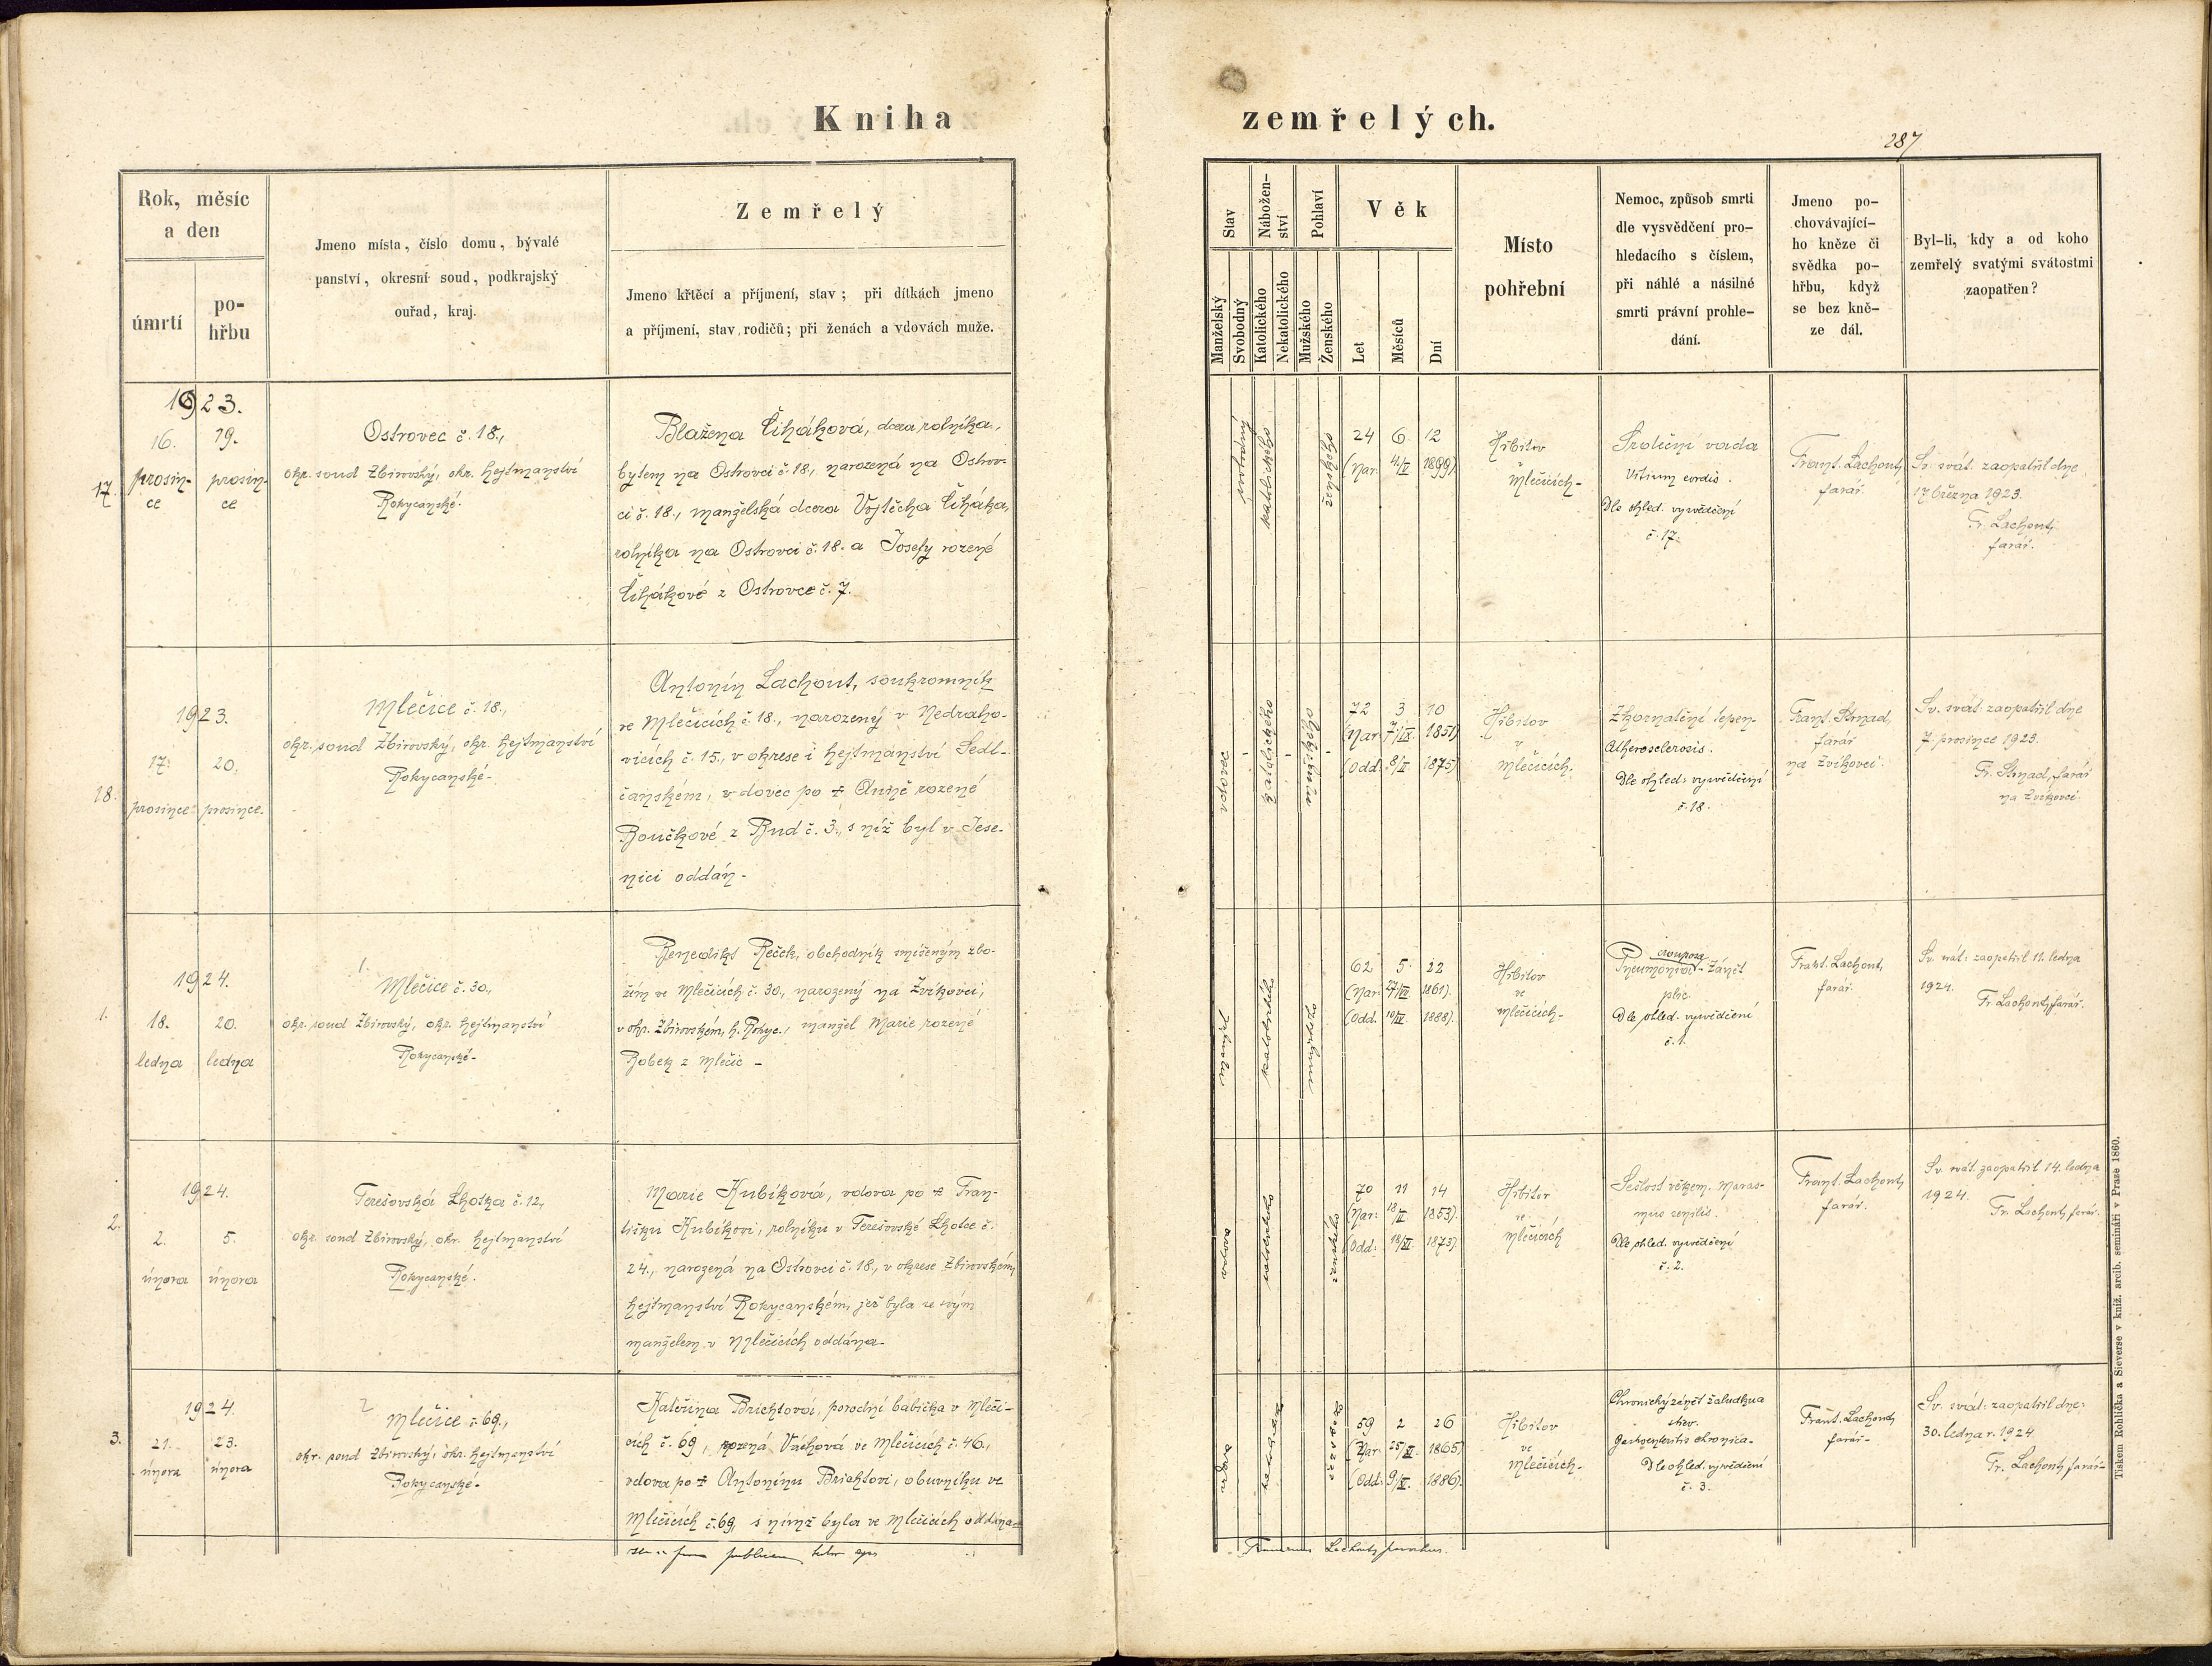 Kniha zemřelých.
287
Rok, měsíc
a den
úmrtí
po-
hřbu
Jmeno místa, číslo domu, bývalé
panství, okresní soud, podkrajský
ouřad, kraj.
Zemřelý
Jmeno křtěcí a příjmení, stav; při dítkách jmeno
a příjmení, stav rodičů; při ženách a vdovách muže.
Stav
Manželský
Svobodný
Nábožen-
ství
Katolického
Nekatolického
Pohlaví
Mužského
Ženského
Věk
Let
Měsíců
Dní
Místo
pohřební
Nemoc, způsob smrti
dle vysvědčení pro-
hledacího s číslem,
při náhlé a násilné
smrti právní prohle-
dání.
Jmeno po-
chovávající-
ho kněze či
svědka po-
hřbu, když
se bez kně-
ze dál.
Byl-li, kdy a od koho
zemřelý svatými svátostmi
zaopatřen?
17.
1923.
16. 19.
prosin- prosin-
ce ce
Ostrovec č. 18.,
okr. soud Zbirovský, okr. hejtmanství
Rokycanské.
Blažena Čiháková, dcera rolníka,
bytem na Ostrovci č. 18., narozená na Ostrov-
ci č. 18., manželská dcera Vojtěcha Čiháka,
rolníka na Ostrovci č. 18. a Josefy rozené
Čihákové z Ostrovce č. 7.
svobodný
katolického
ženského
24 6 12
(Nar. 4/V 1899)
Hřbitov
Mlečicích-
Srdeční vada
Vitium cordis.
Dle ohled. vysvědčení
č. 17.
Frant. Lachout,
farář.
Sv. svát. zaopatřil dne
17. března 1923.
Fr. Lachout,
farář.
18.
1923.
17. 20.
prosince prosince.
Mlečice č. 18.,
okr. soud Zbirovský, okr. hejtmanství
Rokycanské-
Antonín Lachout, soukromník
ve Mlečicích č. 18., narozený v Nedraho-
vicích č. 15., v okrese i hejtmanství Sedl-
čanském, vdovec po ‡ Anně rozené
Boučkové z Bud č. 3., s níž byl v Jese-
nici oddán-
vdovec
katolického
mužského
72 3 10
(Nar. 7/IX 1851)
(Odd. 8/II 1875)
Hřbitov
v
Mlečicích.
Zkornatění tepen-
Atherosclerosis.
Dle ohled. vysvědčení
č. 18.
Frant. Strnad,
farář
na Zvíkovci.
Sv. svát. zaopatřil dne
7. prosince 1923.
Fr. Strnad, farář
na Zvíkovci.
1.
1924.
18. 20.
ledna ledna
1.
Mlečice č. 30.,
okr. soud Zbirovský, okr. hejtmanství
Rokycanské-
Benedikt Reček, obchodník smíšeným zbo-
žím ve Mlečicích č. 30., narozený na Zvíkovci,
v okr. Zbirovském, h. Rokyc., manžel Marie rozené
Bobek z Mlečic -
katolického
mužského
62 5 22
(Nar. 27/VII 1861).
(Odd. 1888).
Hřbitov
ve
Mlečicích-
crouposa
Pneumonia - Zánět
plic.
Dle ohled. vysvědčení
č. 1.
Frant. Lachout,
farář.
Sv. svát. zaopatřil 11. ledna
1924.
Fr. Lachout, farář.
2.
1924.
2. 5.
února února
Terešovská Lhotka č. 12.,
okr. soud Zbirovský, okr. hejtmanství
Rokycanské.
Marie Kubíková, vdova po ‡ Fran-
tišku Kubíkovi, rolníku v Terešovské Lhotce č.
24., narozená na Ostrovci č. 18., v okrese Zbirovském,
hejtmanství Rokycanském, jež byla se svým
manželem v Mlečicích oddána-
vdova
ženského
70 11 14
(Nar. 1853).
(Odd: 18/XI 1873).
Hřbitov
ve
Mlečicích
Sešlost věkem. Maras-
mus senilis.
Dle ohled. vysvědčení
č. 2.
Frant. Lachout,
farář.
Sv. svát. zaopatřil 14. ledna
1924.
Fr. Lachout, farář.
3.
1924.
21. 23.
února února
2
Mlečice č. 69.,
okr. soud Zbirovský, okr. hejtmanství
Rokycanské-
Kateřina Brichtová, porodní babička v Mleči-
cích č. 69, rozená Váchová ve Mlečicích č. 46.,
vdova po ‡ Antonínu Brichtovi, obuvníku ve
Mlečicích č. 69, s nímž byla ve Mlečicích oddána-
vdova
59 2 26
(Nar. 1865)
(Odd. 1886).
Hřbitov
ve
Mlečicích-
Chronický zánět žaludku a
střev.
Gastroenteritis chronica-
Dle ohled. vysvědčení
č. 3.
Frant. Lachout,
farář-
Sv. svát. zaopatřil dne
30. ledna r. 1924
Fr. Lachout, farář-
Lachout, parochus.
Tiskem Rohlíčka a Sieverse v kníž. arcib. semináři v Praze 1860.